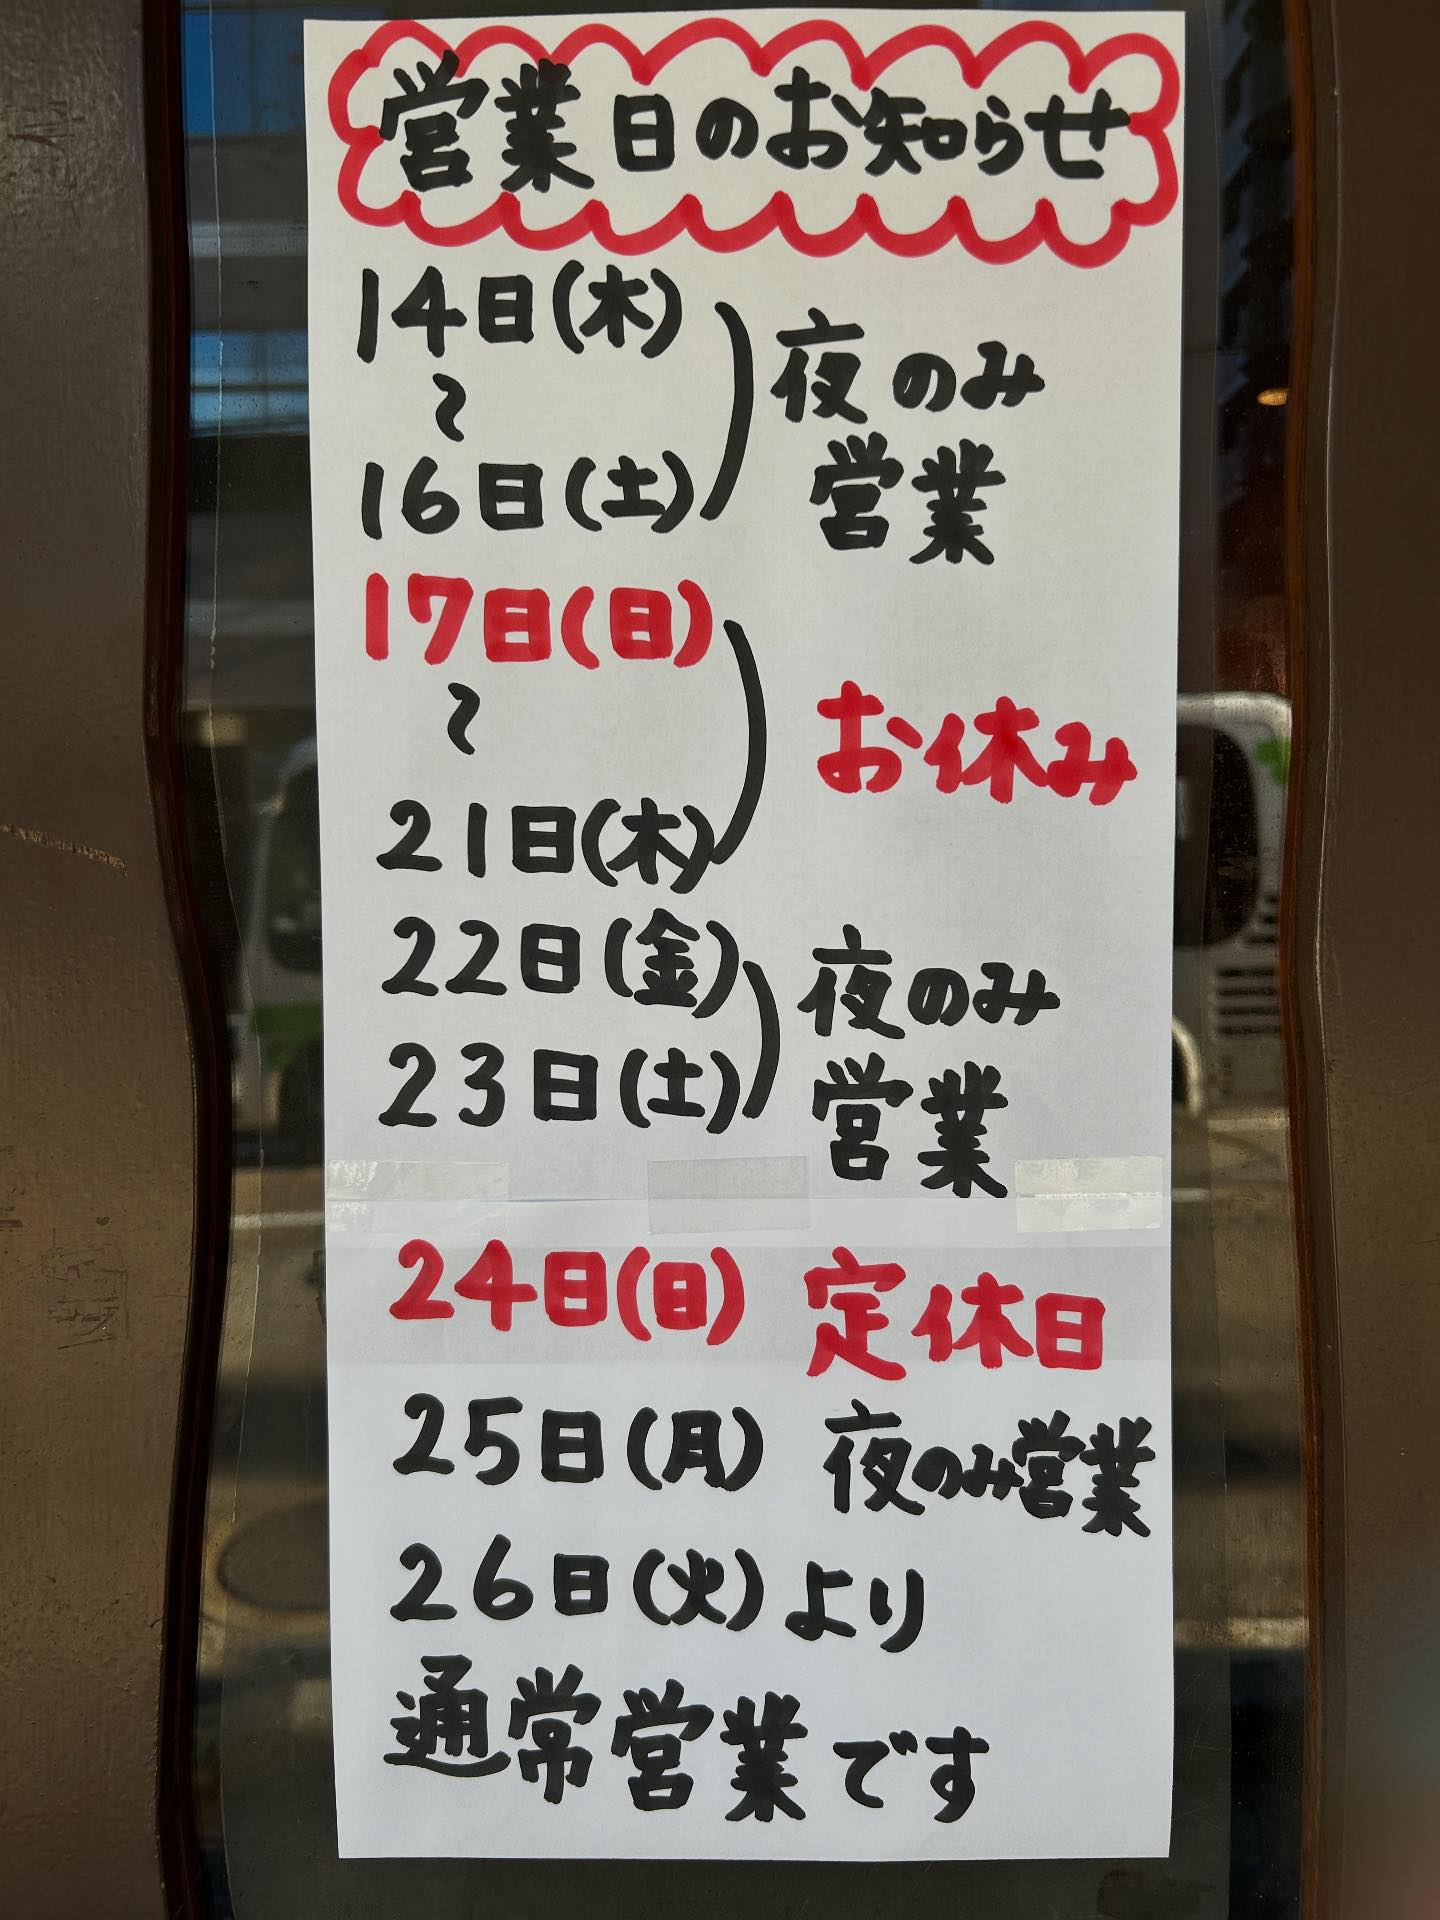 営業日のお知らせ
14日(木)
〜
16日(土)
夜のみ
営業
17日(日)
〜
21日(木)
お休み
22日(金)
23日(土)
夜のみ
営業
24日(日) 定休日
25日(月) 夜のみ営業
26日(火)より
通常営業です